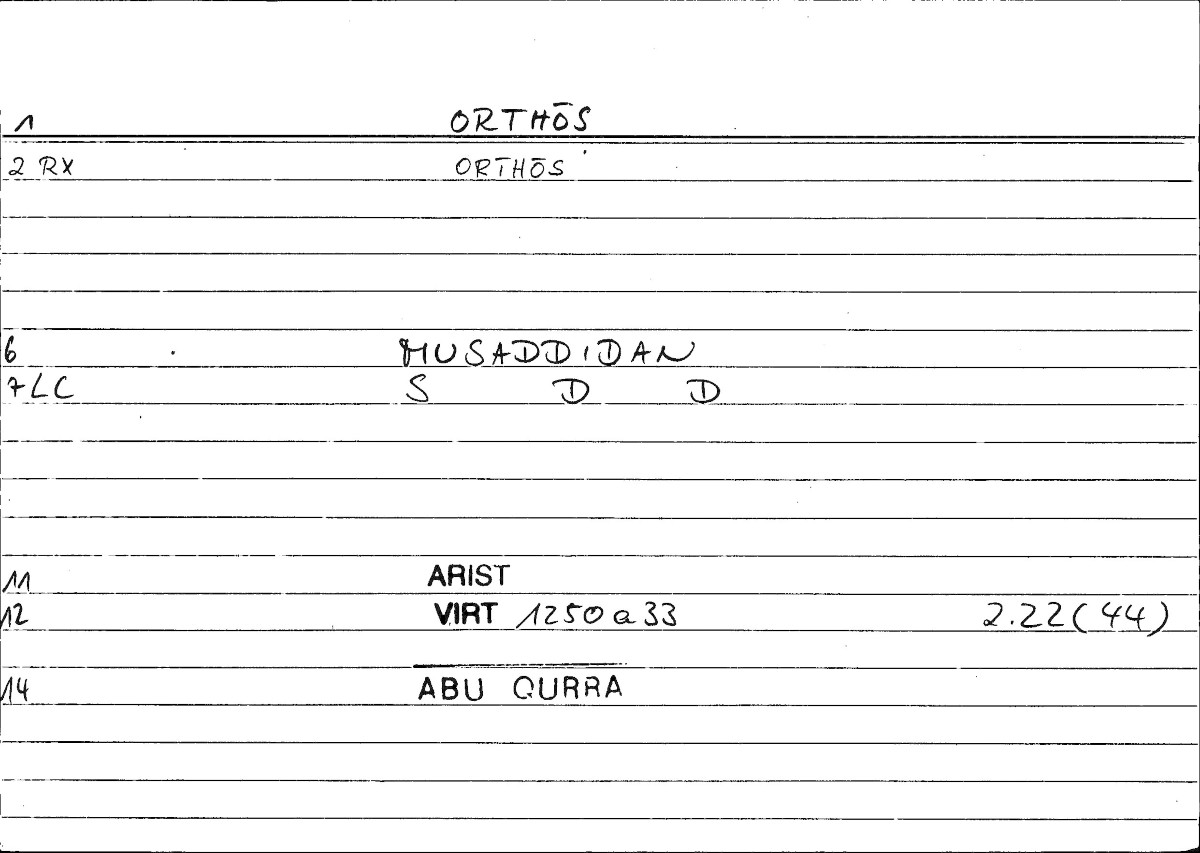 1 ORTHŌS
2 RX ORTHŌS
6 MUSADDIDAN
7 LC S D D
11 ARIST
12 VIRT 1250 a 33 2.22 (44)
14 ABU QURRA